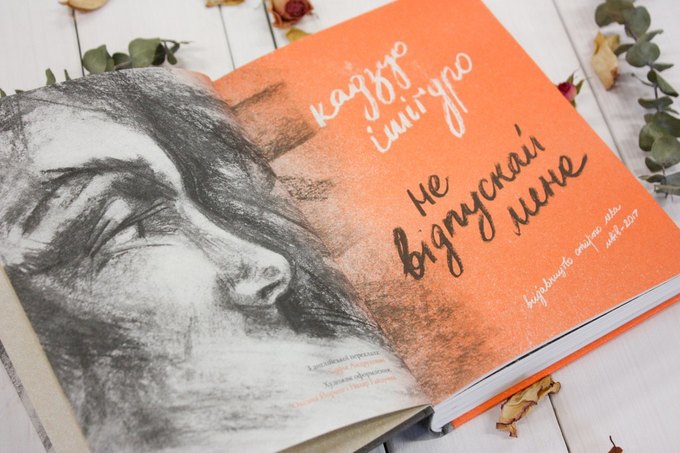 кадзуо
ішіґуро
не
відпускай
мене
видавництво старого лева
львів-2017
З англійської переклала
Софія Андрухович
Художнє оформлення